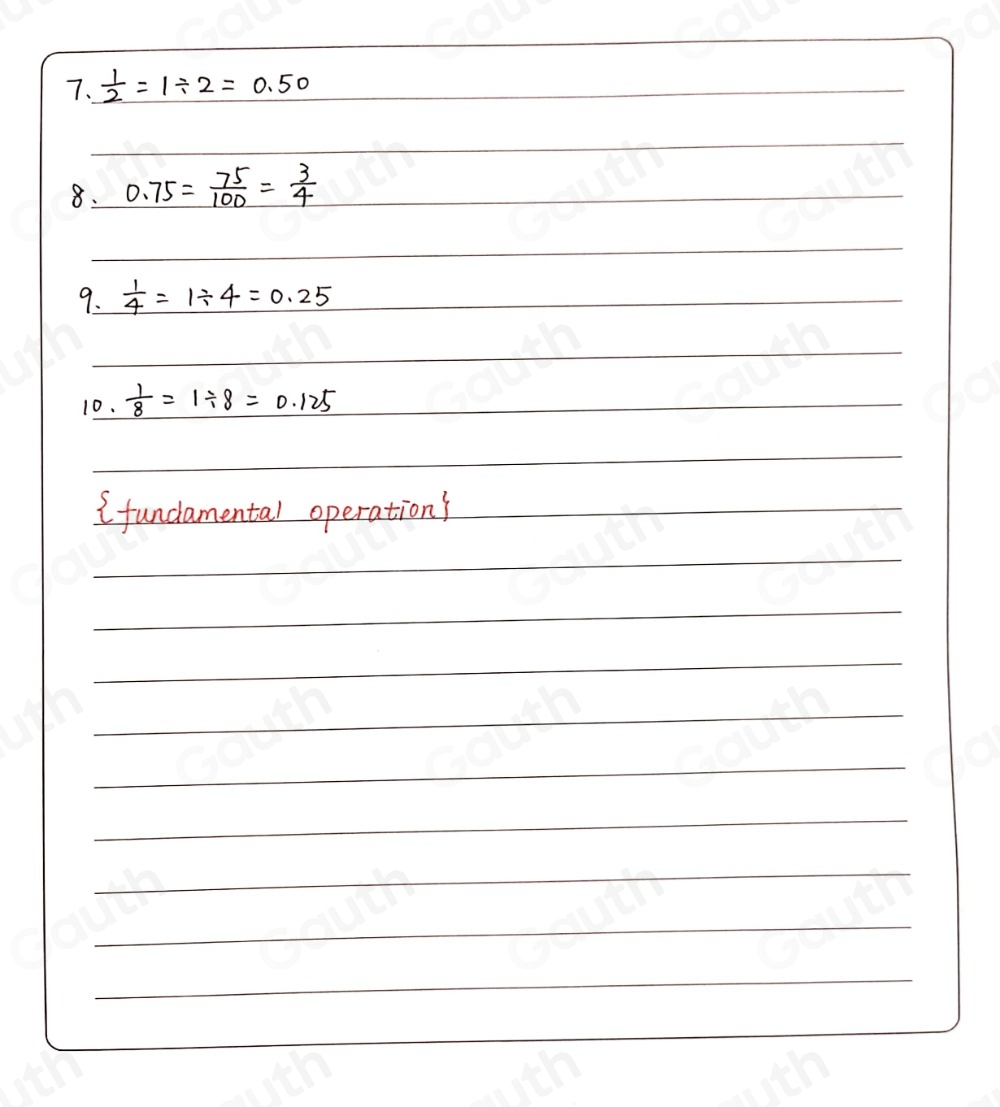 7. 1/2 = 1÷2 = 0.50
8. 0.75 = 75/100 = 3/4
9. 1/4 = 1÷4 = 0.25
10. 1/8 = 1÷8 = 0.125
{fundamental operation}